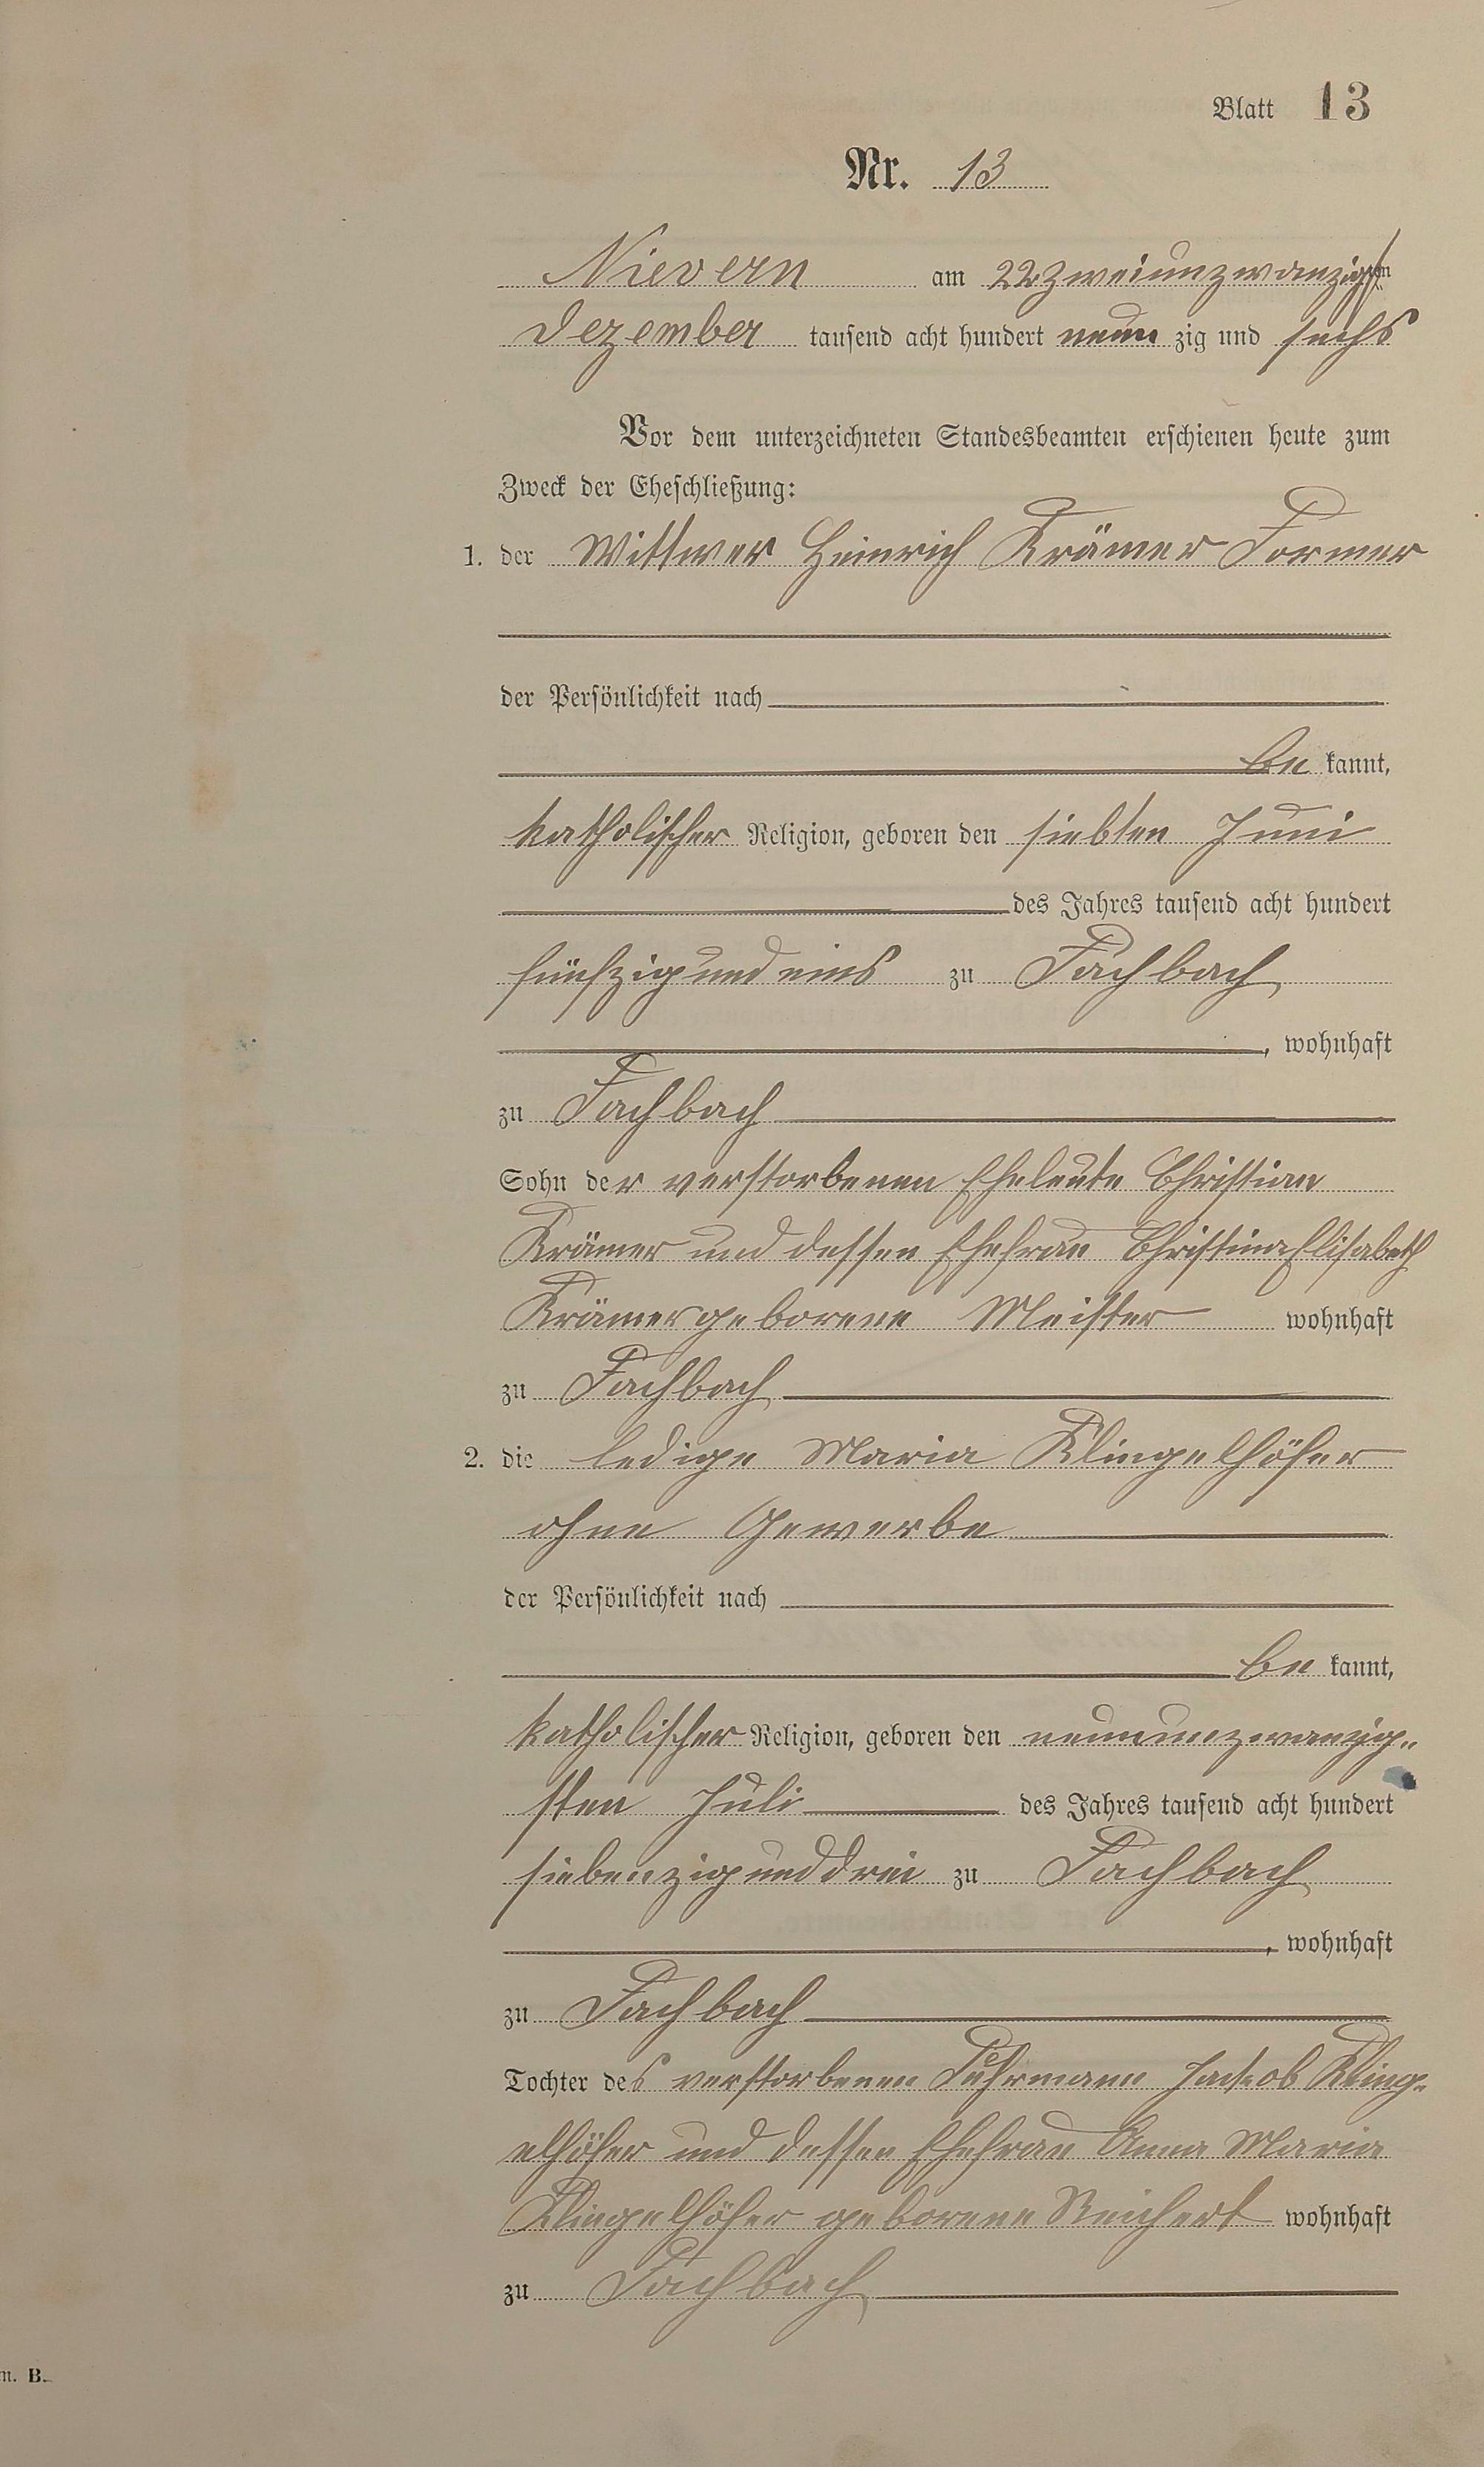 Blatt 13
Nr. 13
Nievern am 22 zweiunzwanzigsten
Dezember tausend acht hundert neun zig und sechs
Vor dem unterzeichneten Standesbeamten erschienen heute zum
Zweck der Eheschließung:
1. der Wittwer Heinrich Krämer Former
der Persönlichkeit nach
be kannt,
katholischer Religion, geboren den siebten Juni
des Jahres tausend acht hundert
fünfzig und eins zu Fachbach
, wohnhaft
zu Fachbach
Sohn der verstorbenen Eheleute Christian
Krämer und dessen Ehefrau Christina Elisabeth
Krämer geborene Meister wohnhaft
zu Fachbach
2. die ledige Maria Klingelhöfer
ohne Gewerbe
der Persönlichkeit nach
be kannt,
katholischer Religion, geboren den neununzwanzig„
sten Juli des Jahres tausend acht hundert
siebenzig und drei zu Fachbach
, wohnhaft
zu Fachbach
Tochter des verstorbenen Fuhrmann Jackob Kling„
elhöfer und dessen Ehefrau Anna Maria
Klingelhöfer geborene Reichert wohnhaft
zu Fachbach
m. B.